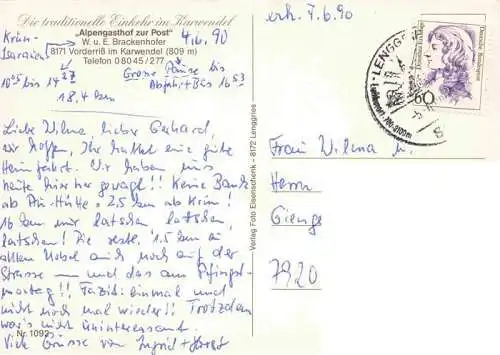 Die traditionelle Einkehr im Karwendel
„Alpengasthof zur Post“
W. u. E. Brackenhofer
8171 Vorderriß im Karwendel (809 m)
Telefon 0 80 45 / 277
4.6.90
Krün -
bis
Große Pause bis
Abfahrt Bus 16 53
18,4 km
Liebe Wilma, lieber Gerhard,
wir hoffen, Ihr hattet eine gute
Heimfahrt. Wir haben uns
heute hierher gewagt!! Keine Bank
ab Hütte = 2,5 km ab Krün!
16 km nur latschen, latschen,
latschen! Die restl. 1,5 km in
auch noch auf der
Strasse – und das am Pfingst-
montag!! Fazit: einmal und
nicht noch mal wieder!! Trotzdem
war's nicht uninteressant.
Viele Grüsse von Ingrid + Horst
Nr. 1092
Verlag Foto Eisenschenk - 8172 Lenggries
erh. 7.6.90
LENGGRIES
Deutsche Bundespost
60
8
Frau Wilma u.
Herrn
Gienge
7920